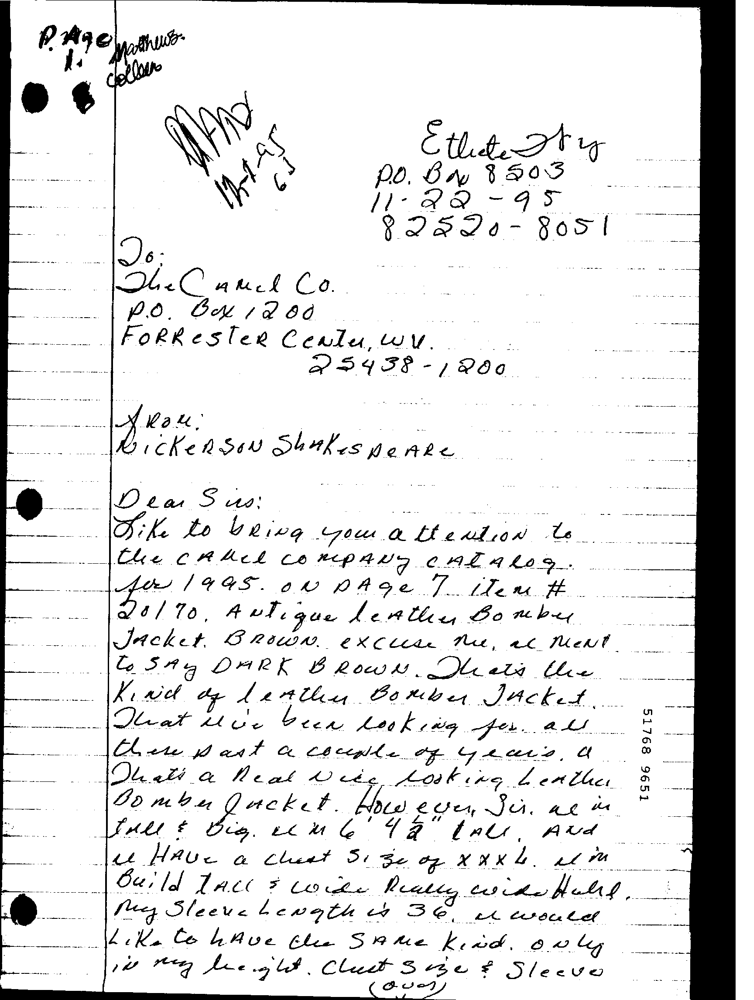 P. Age Matthews.
1. Colleen
12-1-95
GJ
Ethete Wy
P.O. Box 8503
11-22-95
82520-8051
To:
The Camel Co.
P.O. Box 1200
FORResteR Center, WV.
25438-1200
From:
NickeRSON ShakespeaRe
Dear Sirs:
Like to bRing your attention to
the camel company catalog.
for 1995. on page 7 item #
20170. Antique leather Bomber
Jacket. BROWN. excuse me, I ment
to say DARK BROWN. Thats the
Kind of leather Bomber Jacket.
That I've been looking for all
these past a couple of years. a
Thats a Real Nice looking Leather
Bomber Jacket. However, Sir. I'm
tall & Big. I'm 6' 4½" tall. And
I HAVE a chest size of xxxL. I'm
Build tall & wide Really wide
My Sleeve Length is 36. I would
Like to have the SAME Kind. only
in my height. Chest Size & Sleeve
(over)
51768 9651